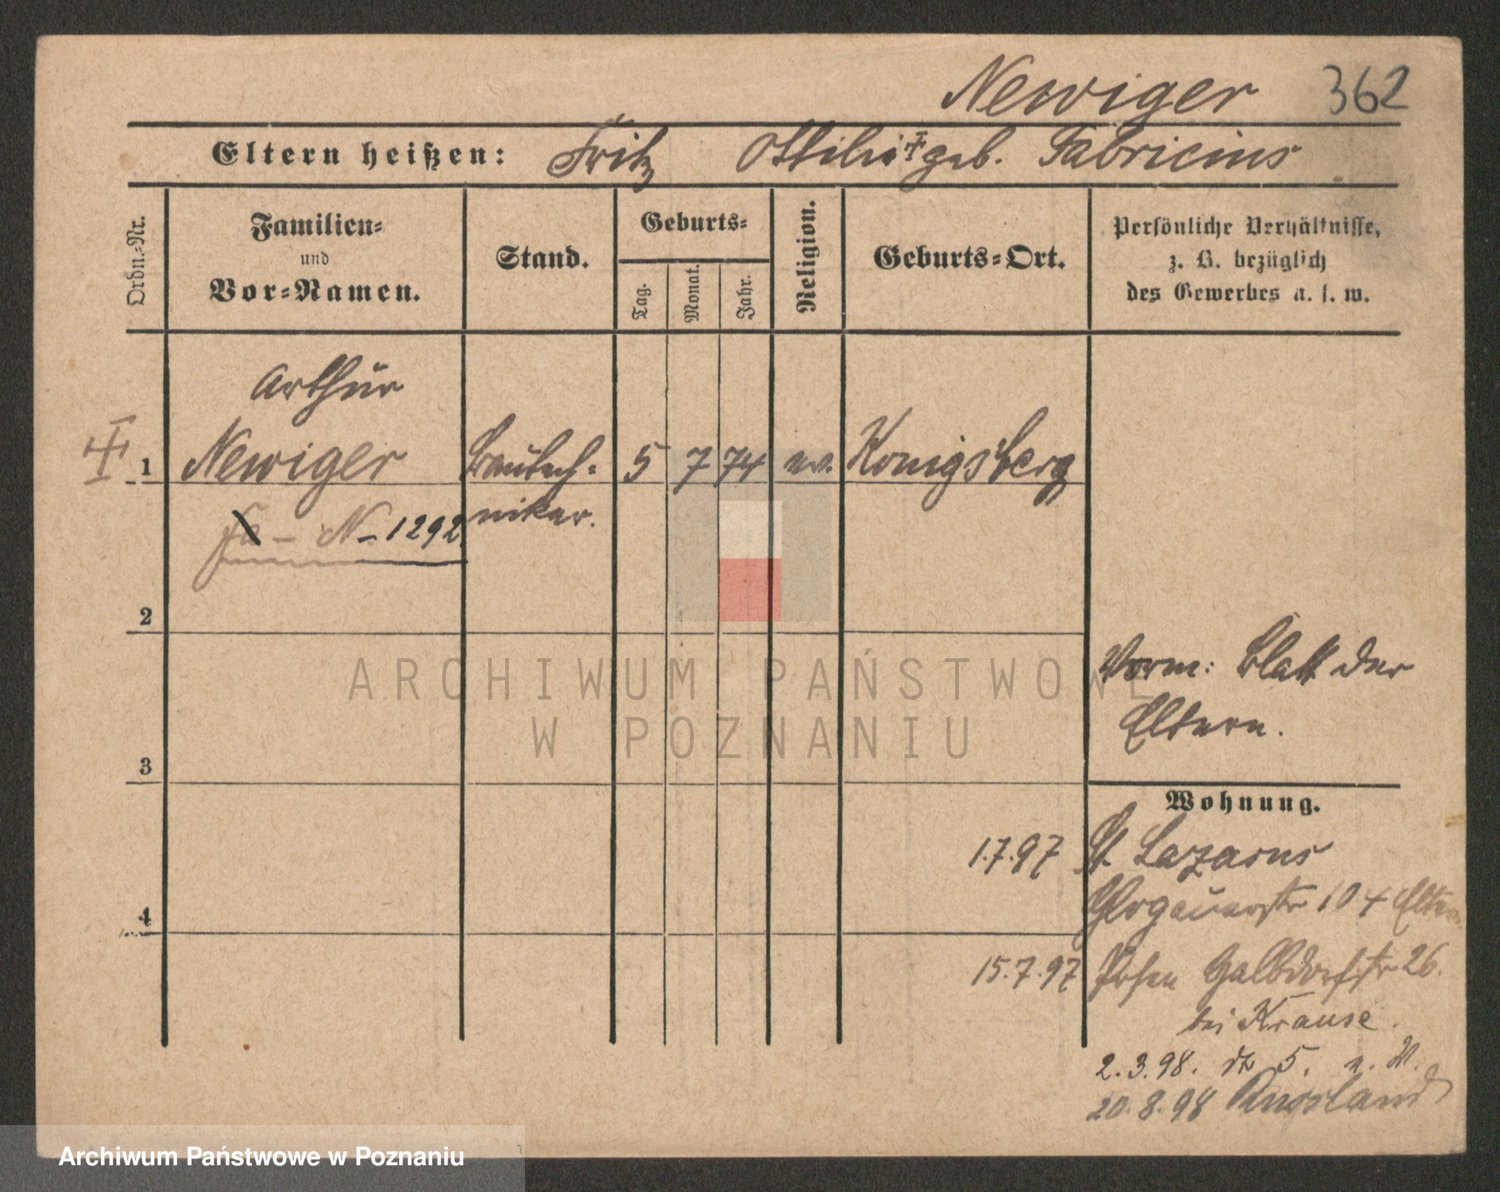 Newiger 362
Eltern heißen: Fritz Ottilie geb. Fabricius
Ordn.-Nr.
Familien-
und
Vor-Namen.
Stand.
Geburts-
Tag.
Monat.
Jahr.
Religion.
Geburts-Ort.
Persönliche Verhältnisse,
z. B. bezüglich
des Gewerbes u. s. w.
Arthur
1 Newiger Bautech- 5 7 74 ev. Königsberg
niker.
N 1292
2
3
4
Vorm: Blatt der
Eltern.
Wohnung.
1.7.97 St Lazarus
Glogauerstr 104 Eltern
15.7.97 Posen Halbdorfstr 26.
bei Krause.
2.3.98. 5.
20.8.98 Russland
ARCHIWUM PAŃSTWOWE
W POZNANIU
Archiwum Państwowe w Poznaniu